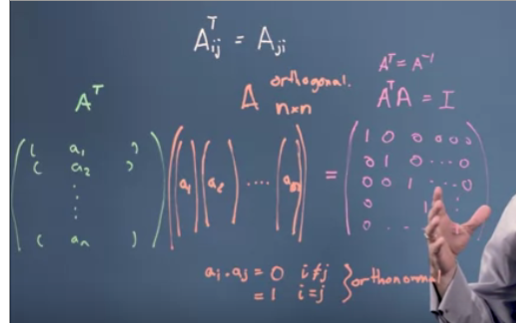 Aᵀᵢⱼ = Aⱼᵢ
Aᵀ
A orthogonal. n×n
Aᵀ = A⁻¹
AᵀA = I
( ( a₁ )
( a₂ )
⋮
( aₙ ) ) ( (a₁) (a₂) .... (aₙ) ) = ( 1 0 0 0 0 0
0 1 0 ... 0
0 0 1 ... 0
0 1 :
0 . . )
aᵢ · aⱼ = 0 i ≠ j
= 1 i = j } orthonormal